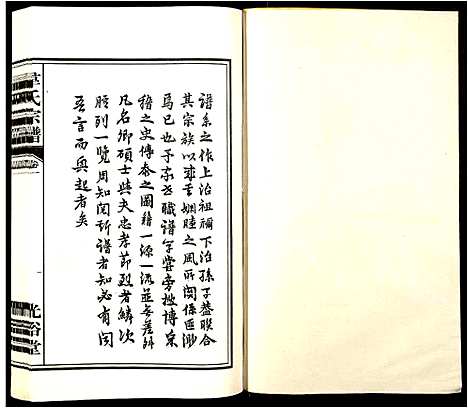 譜系之作上治祖禰下治孫子蓋聯合
其宗族以求其婣睦之風所關係匪渺
焉已也予忝世職譜字嘗旁搜博采
稽之史傳泰之圖籍一源一流並無差舛
凡名卿碩士與夫忠孝節烈者鱗次
臚列一覽周知閱斯譜者知必有閱
吾言而興起者矣
氏宗譜
光裕堂